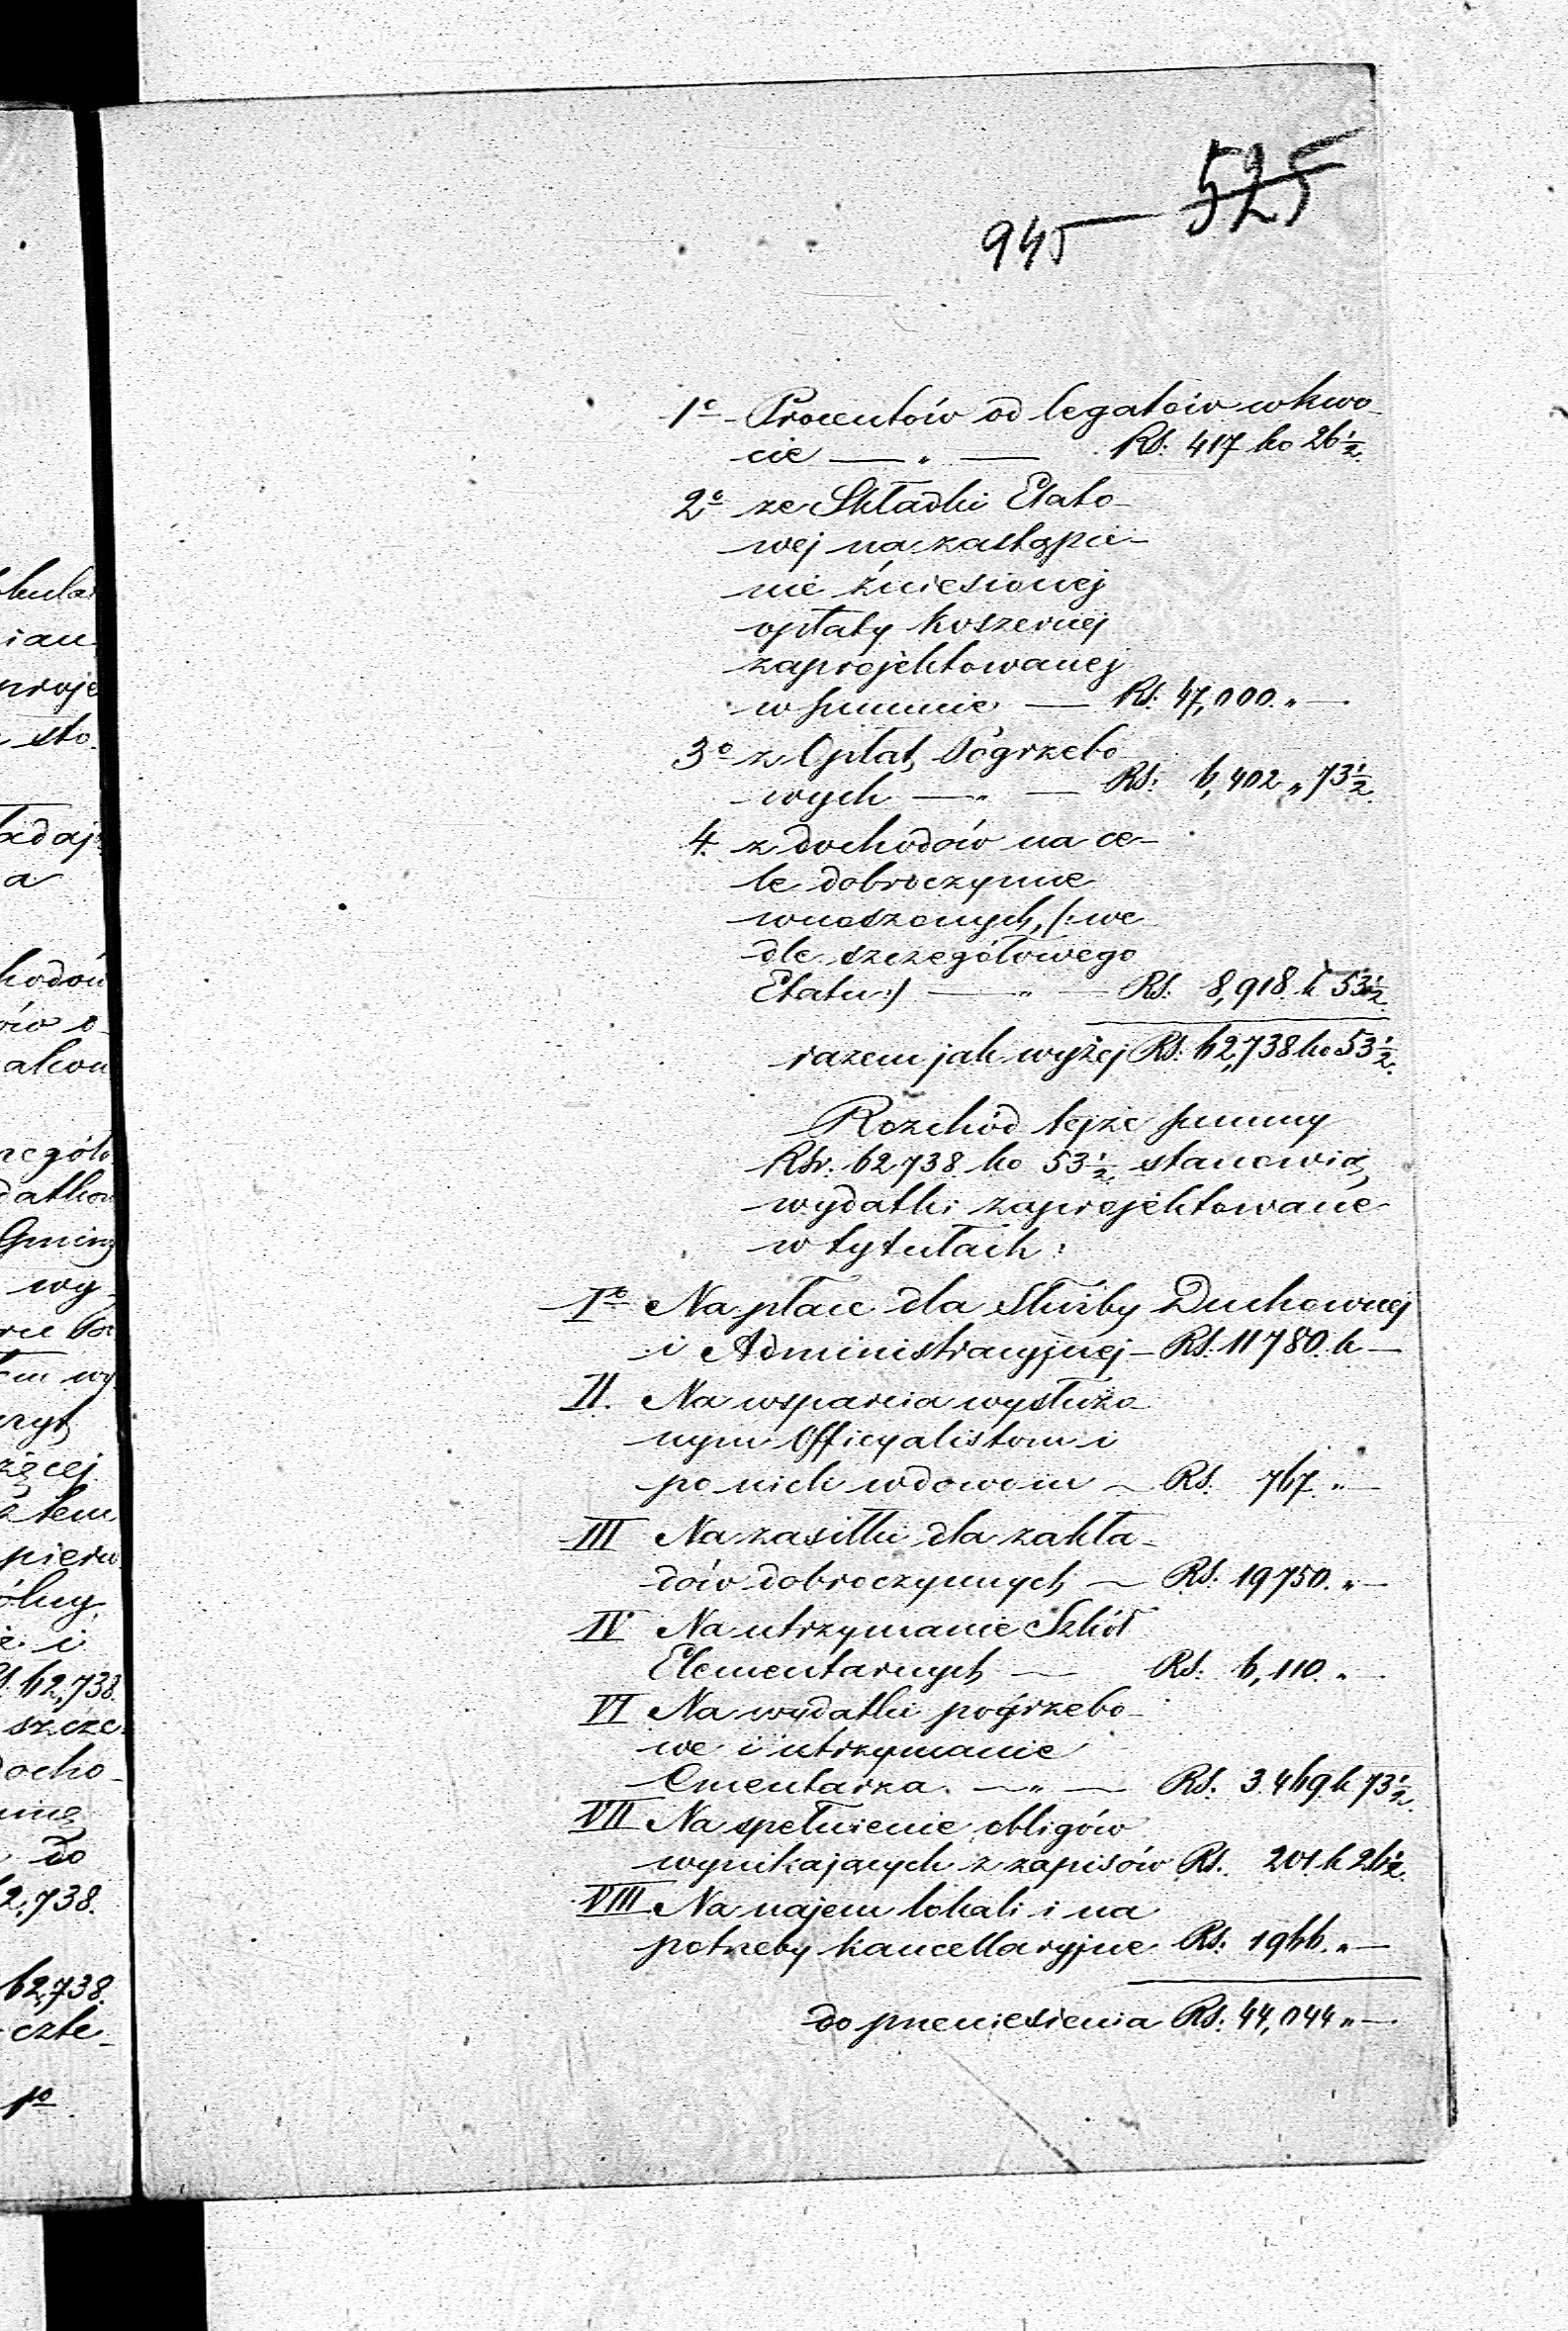 proje
sto.
tadaj
a
62,738.
szcze
docho-
do
2,738.
62,738.
czte-
1o
945 — 525
1o Procentów od legatów w kwo-
cie — „ — Rs. 417 ko 26½.
2o ze Składki Etato-
wej na zastąpie-
nie źniesionej
opłaty koszernej
zaprojektowanej
w summie — Rs. 47,000. „ —
3o z Opłat Pogrzebo-
wych — „ — Rs. 6,402 „ 73½.
4. z dochodów na ce-
le dobroczynne
wnoszonych, /: we
dle szczegółowego
Etatu :/ — „ — Rs. 8,918. k 53½.
razem jak wyżej Rs. 62,738 ko 53½.
Rozchód tejże summy
Rsr. 62738. ko 53½ stanowią
wydatki zaprojektowane
w tytułach:
Io Na płace dla Służby Duchownej
i Administracyjnej — Rs. 11780. k —
II. Na wsparcia wysłużo-
nym Officyalistom i
po nich wdowom — Rs. 767. „ —
III Na zasiłki dla zakła-
dów dobroczynnych — Rs. 19750. „ —
IV Na utrzymanie Szkół
Elementarnych — Rs. 6,110. „ —
VI Na wydatki pogrzebo-
we i utrzymanie
Cmentarza. — „ — Rs. 3.469. k 73½.
VII Na spełnienie obligów
wynikających z zapisów Rs. 201 k 26½.
VIII Na najem lokali i na
potrzeby kancellaryjne Rs. 1966. „ —
do przeniesienia Rs. 44,044 „ —.